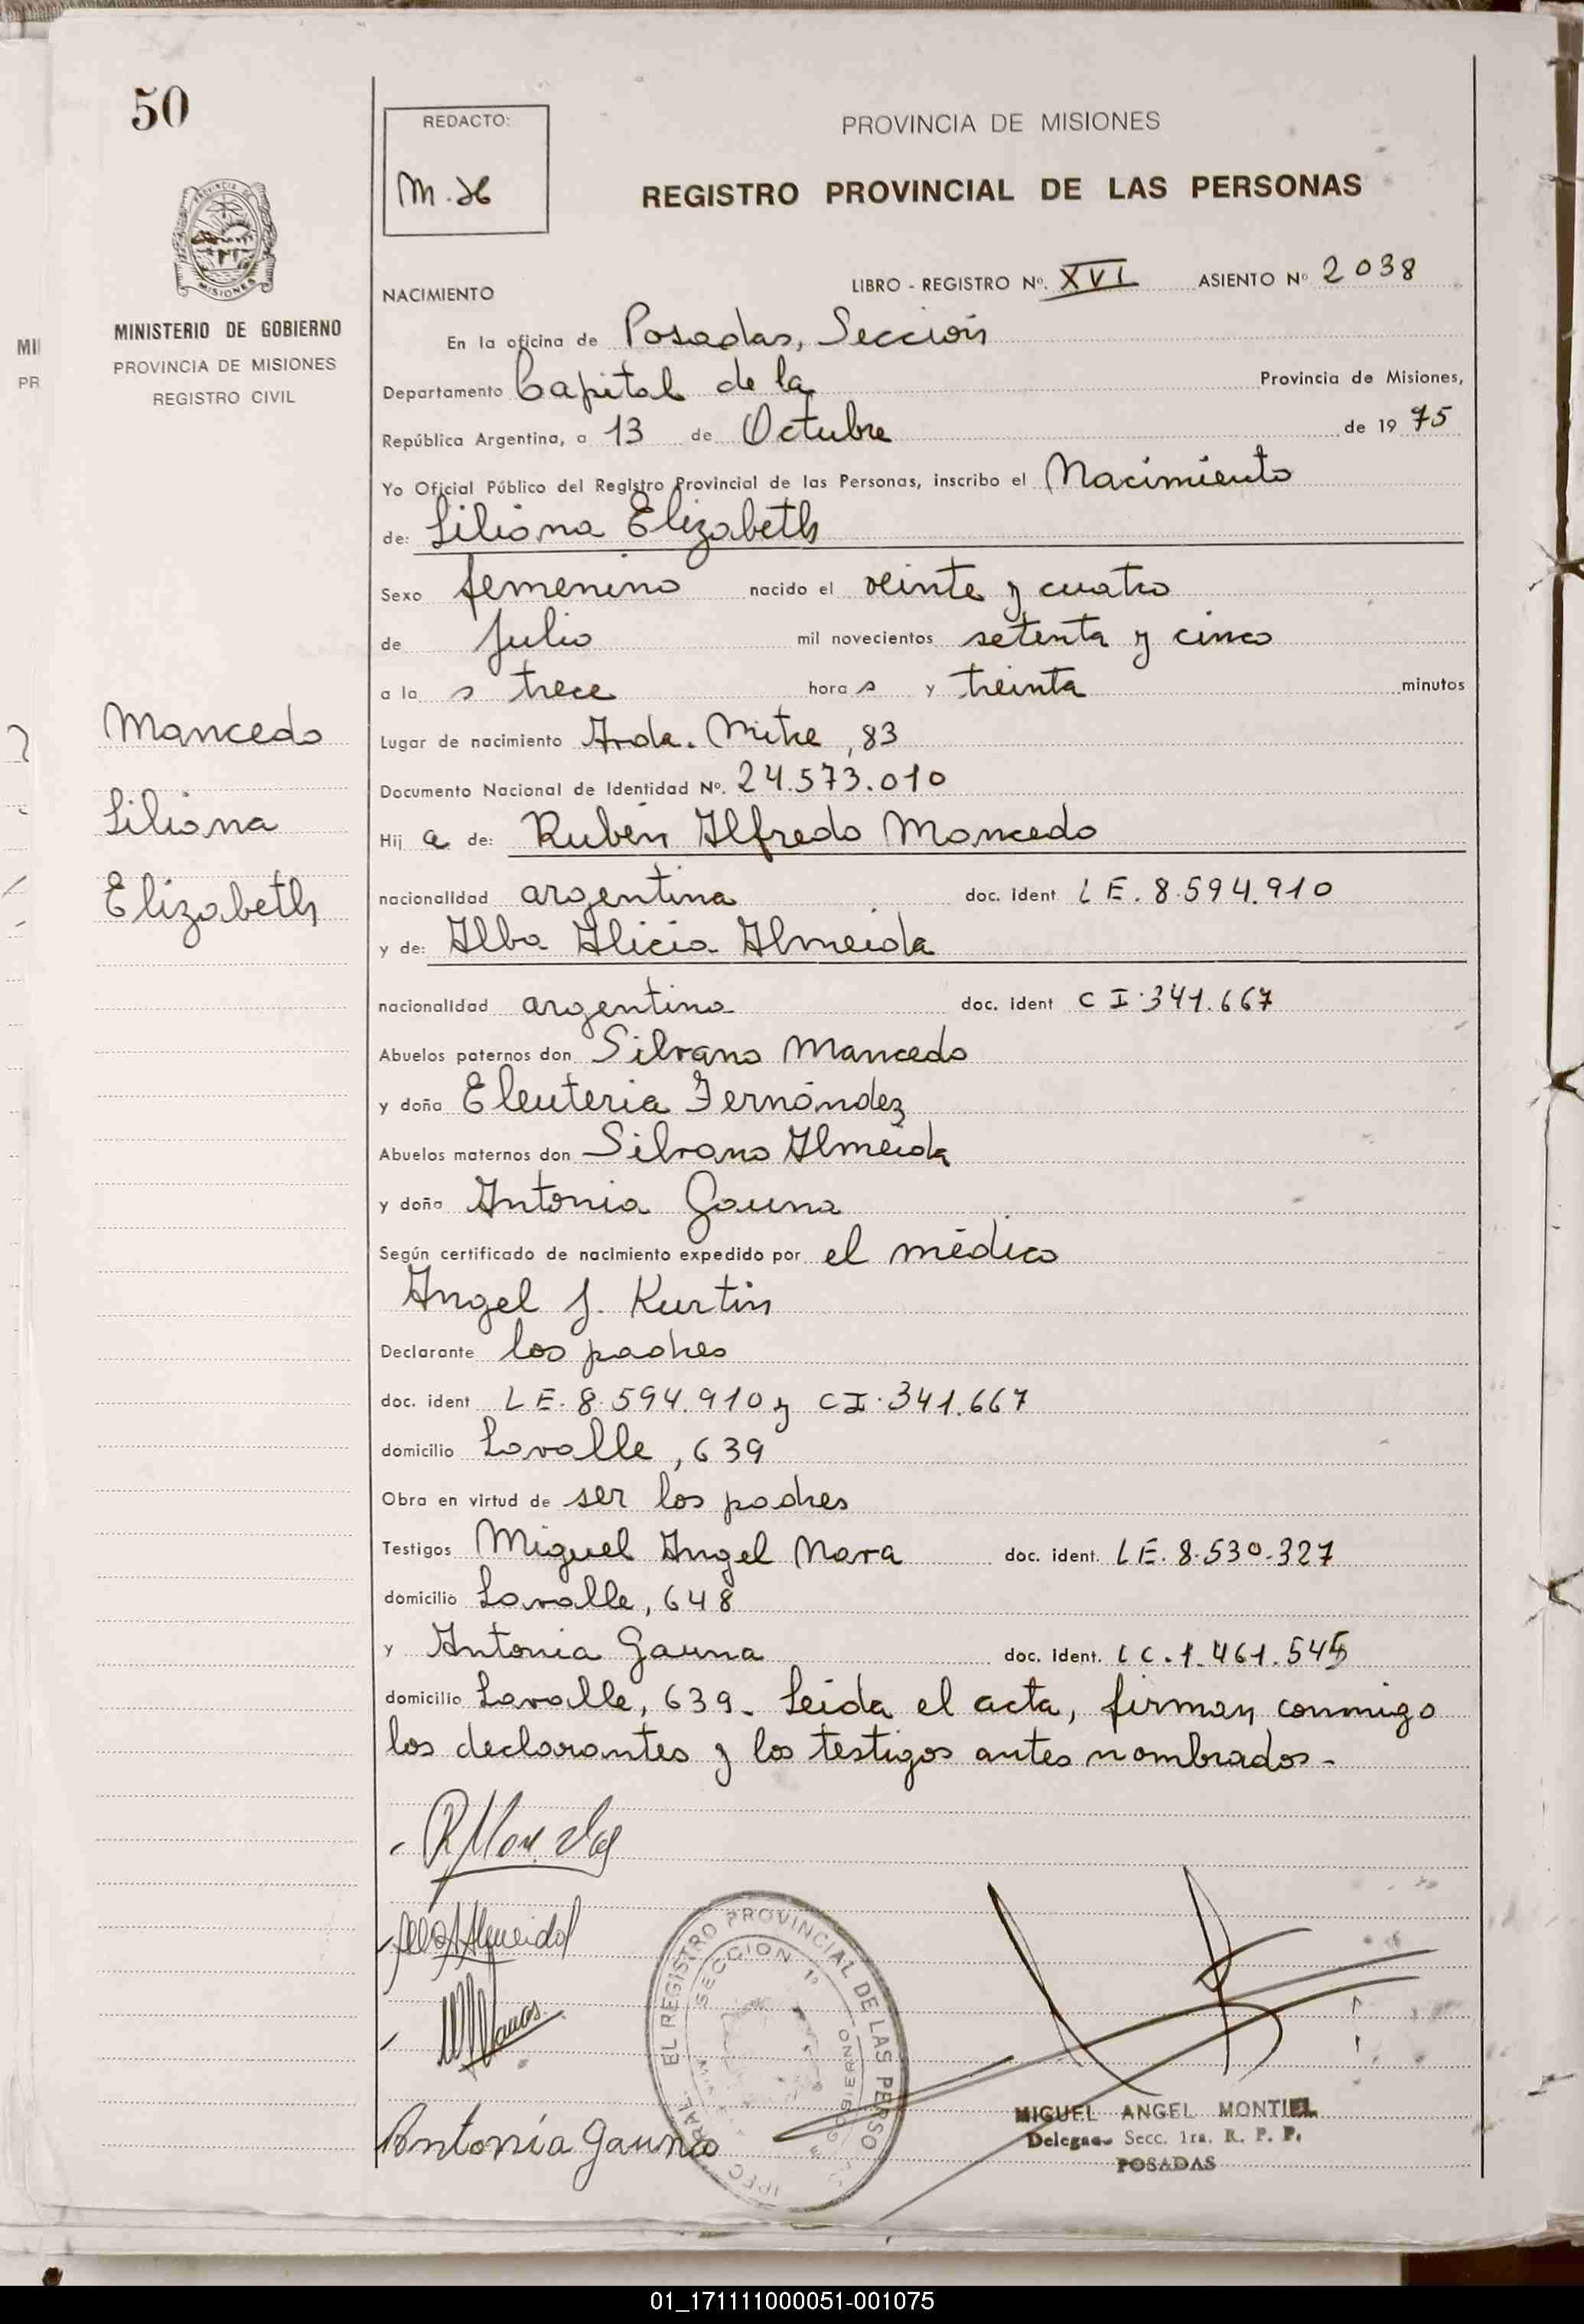 50
REDACTO:
M.H
PROVINCIA DE MISIONES
REGISTRO PROVINCIAL DE LAS PERSONAS
MINISTERIO DE GOBIERNO
PROVINCIA DE MISIONES
REGISTRO CIVIL
NACIMIENTO
LIBRO - REGISTRO Nº. XVI ASIENTO Nº 2038
En la oficina de Posadas, Sección
Departamento Capital de la Provincia de Misiones,
República Argentina, a 13 de Octubre de 1975
Yo Oficial Público del Registro Provincial de las Personas, inscribo el Nacimiento
de: Liliana Elizabeth
Sexo femenino nacido el veinte y cuatro
de Julio mil novecientos setenta y cinco
a la s trece hora s y treinta minutos
Mancedo
Liliana
Elizabeth
Lugar de nacimiento Avda. Mitre, 83
Documento Nacional de Identidad Nº. 24.573.010
Hij a de: Rubén Alfredo Mancedo
nacionalidad argentina doc. ident LE. 8.594.910
y de: Alba Alicia Almeida
nacionalidad argentina doc. ident C I. 341.667
Abuelos paternos don Silvano Mancedo
y doña Eleuteria Fernández
Abuelos maternos don Silvano Almeida
y doña Antonia Gauna
Según certificado de nacimiento expedido por el médico
Angel J. Kurtin
Declarante los padres
doc. ident LE. 8.594.910 y CI. 341.667
domicilio Lavalle, 639
Obra en virtud de ser los padres
Testigos Miguel Angel Nara doc. ident. LE. 8.530.327
domicilio Lavalle, 648
y Antonia Gauna doc. ident. LC. 1.461.545
domicilio Lavalle, 639. Leida el acta, firman conmigo
los declarantes y los testigos antes nombrados.-
Antonia Gauna
EL REGISTRO PROVINCIAL DE LAS PERSO
SECCION 1º
GOBIERNO
MIGUEL ANGEL MONTIEL
Secc. 1ra. R. P. P.
POSADAS
01_171111000051-001075